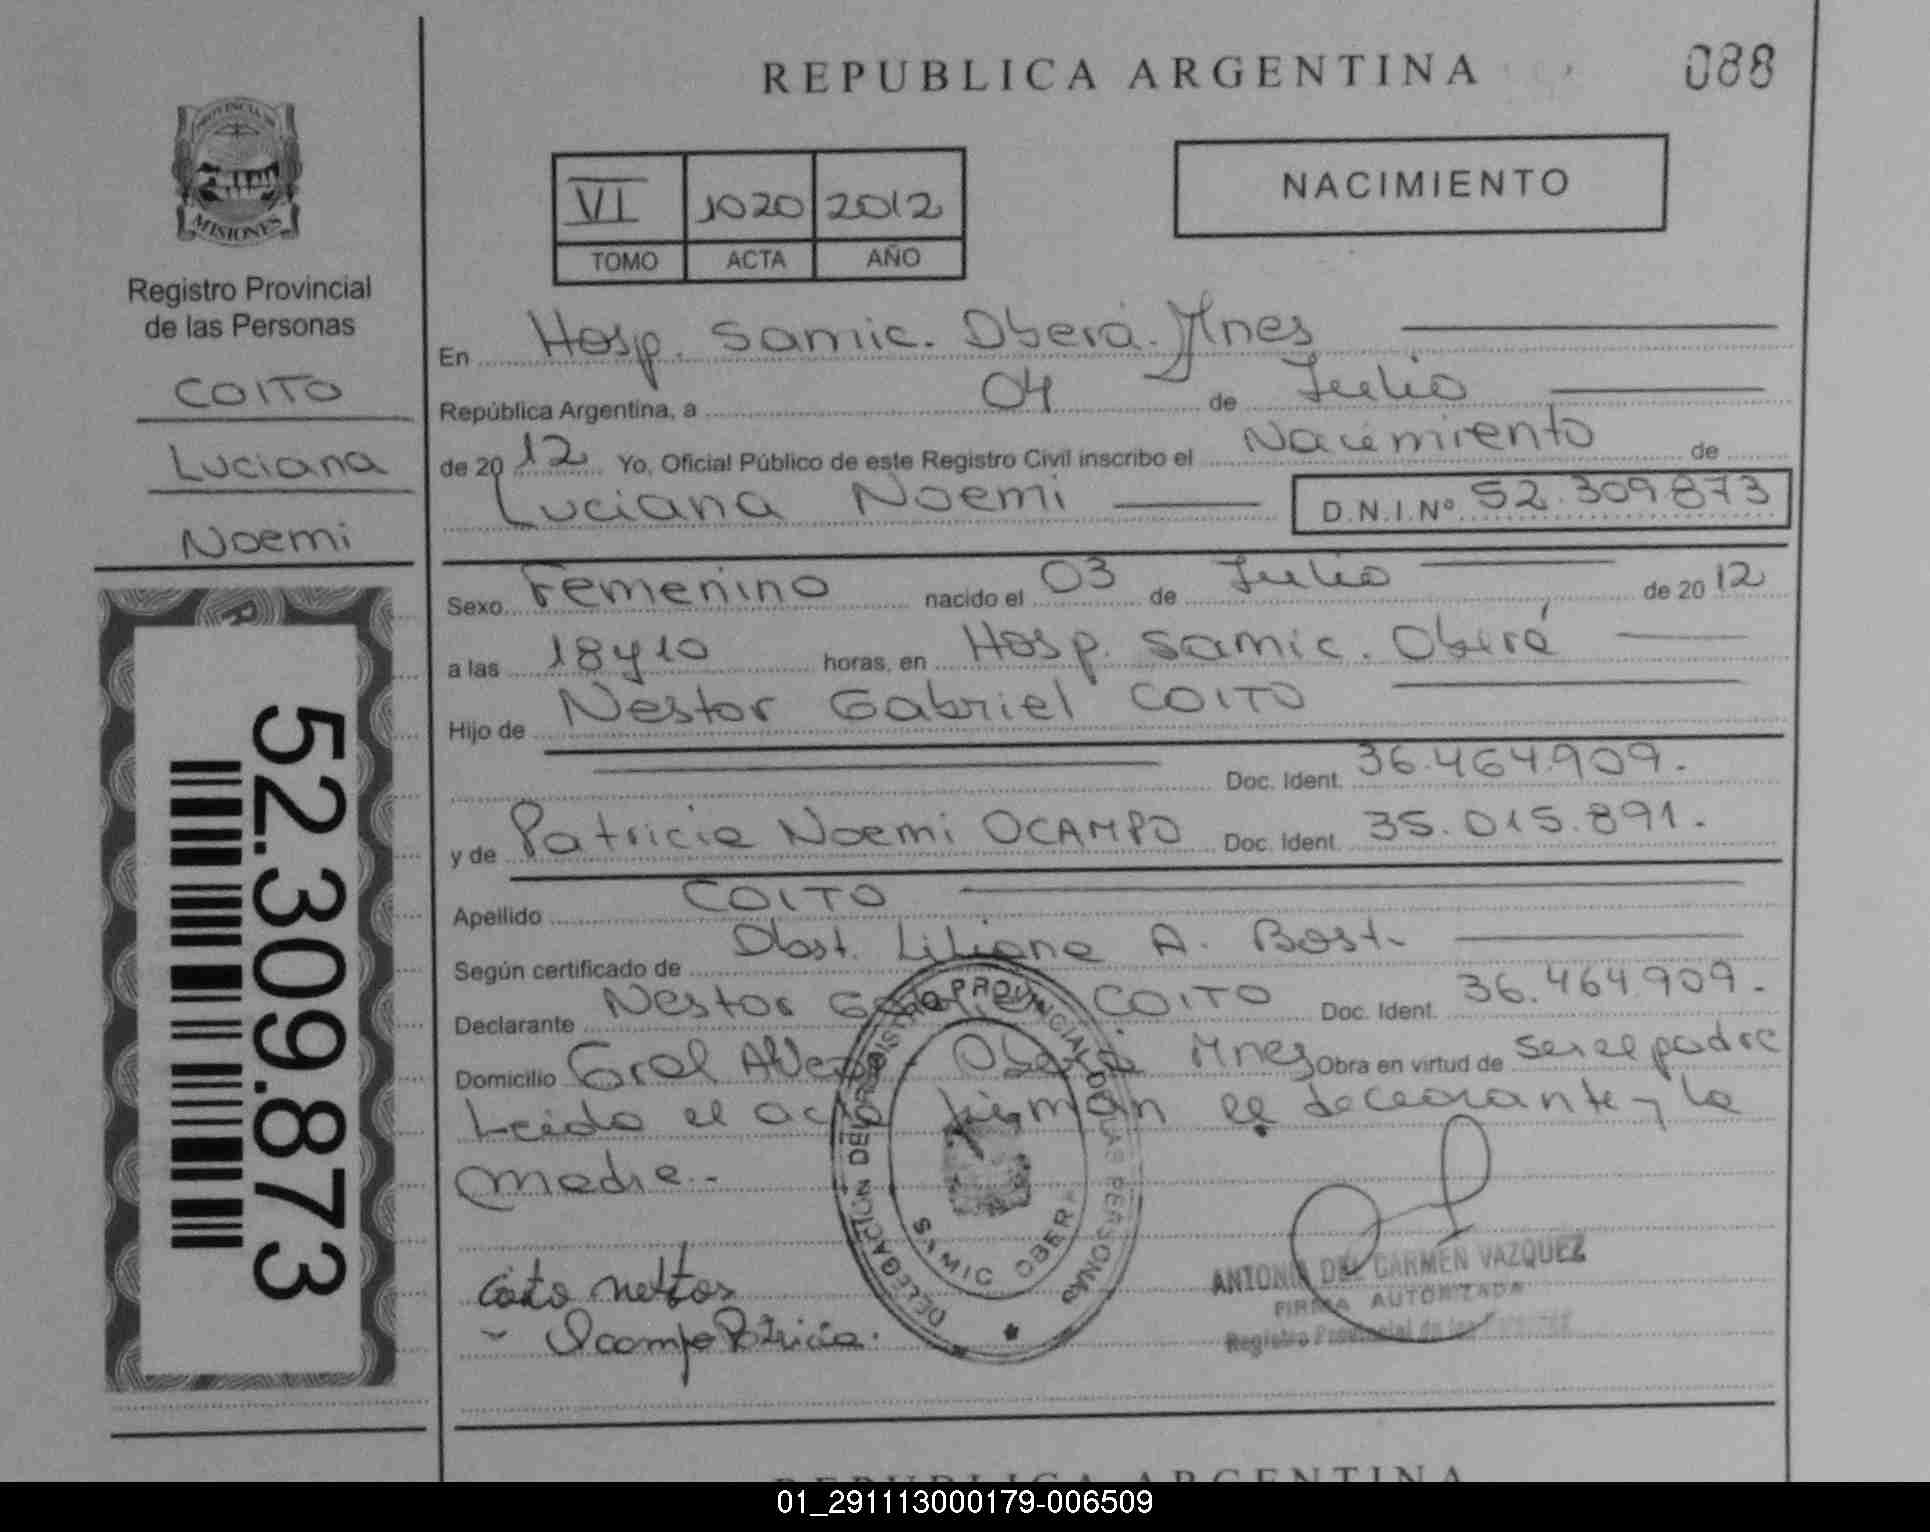 REPUBLICA ARGENTINA
088
PROVINCIA DE
MISIONES
Registro Provincial
de las Personas
COITO
Luciana
Noemi
52.309.873
VI 1020 2012
TOMO ACTA AÑO
NACIMIENTO
En Hosp. Samic. Oberá. Mnes
República Argentina, a 04 de Julio
de 2012 Yo, Oficial Público de este Registro Civil inscribo el Nacimiento de
Luciana Noemi D.N.I.Nº 52.309.873
Sexo Femenino nacido el 03 de Julio de 2012
a las 18 y 10 horas, en Hosp. Samic. Oberá
Hijo de Nestor Gabriel COITO
Doc. Ident. 36.464.909.
y de Patricia Noemi OCAMPO Doc. Ident. 35.015.891.
Apellido COITO
Según certificado de Obst. Liliana A. Bost.
Declarante Nestor Gabriel COITO Doc. Ident. 36.464.909.
Domicilio Gral Alvear Oberá Mnes Obra en virtud de ser el padre
Leida el acta firman el declarante y la
madre.-
DELEGACION DEL REGISTRO PROVINCIAL DE LAS PERSONAS
SAMIC OBERA
Coito nestor
Ocampo Patricia.
ANTONIA DEL CARMEN VAZQUEZ
FIRMA AUTORIZADA
Registro Provincial de las
REPUBLICA ARGENTINA
01_291113000179-006509